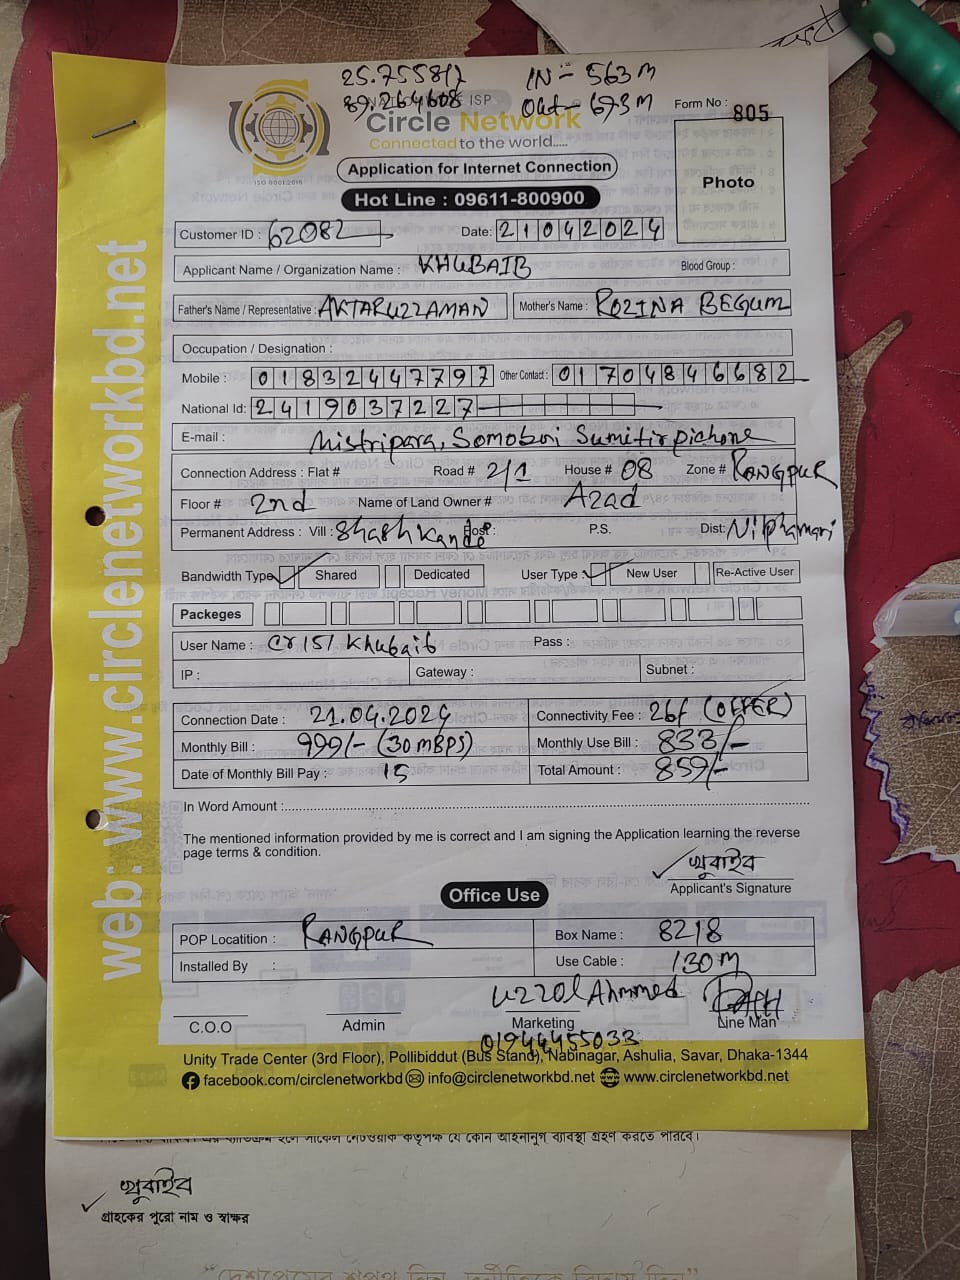 25.755812 IN - 563 m
89.264608 Out - 693 m
ISP
Form No : 805
Circle Network
Connected to the world.....
ISO 9001:2015
Application for Internet Connection
Photo
Hot Line : 09611-800900
Customer ID : 62082 Date: 21042024
Applicant Name / Organization Name : KHUBAIB Blood Group :
Father's Name / Representative : AKTARUZZAMAN Mother's Name : ROZINA BEGUM
Occupation / Designation :
Mobile : 01832447797 Other Contact : 01704846682
National Id: 2419037227
E-mail : Mistripara, Somobai Sumitir pichone
Connection Address : Flat # Road # 2/1 House # 08 Zone # RANGPUR
Floor # 2nd Name of Land Owner # Azad
Permanent Address : Vill : Shashkande Post : P.S. Dist: Nilphamari
Bandwidth Type Shared Dedicated User Type : New User Re-Active User
Packeges
User Name : Cr151 Khubaib Pass :
IP : Gateway : Subnet :
Connection Date : 21.04.2024 Connectivity Fee : 26/ (OFFER)
Monthly Bill : 999/- (30 MBPS) Monthly Use Bill : 833/-
Date of Monthly Bill Pay : 15 Total Amount : 859/-
In Word Amount :
The mentioned information provided by me is correct and I am signing the Application learning the reverse
page terms & condition.
খুবাইব
Applicant's Signature
Office Use
POP Locatition : RANGPUR Box Name : 8218
Installed By : Use Cable : 130 m
Uzzol Ahmmed
C.O.O Admin Marketing Line Man
01944455033
Unity Trade Center (3rd Floor), Pollibiddut (Bus Stand), Nabinagar, Ashulia, Savar, Dhaka-1344
facebook.com/circlenetworkbd info@circlenetworkbd.net www.circlenetworkbd.net
web: www.circlenetworkbd.net
খুবাইব
গ্রাহকের পুরো নাম ও স্বাক্ষর